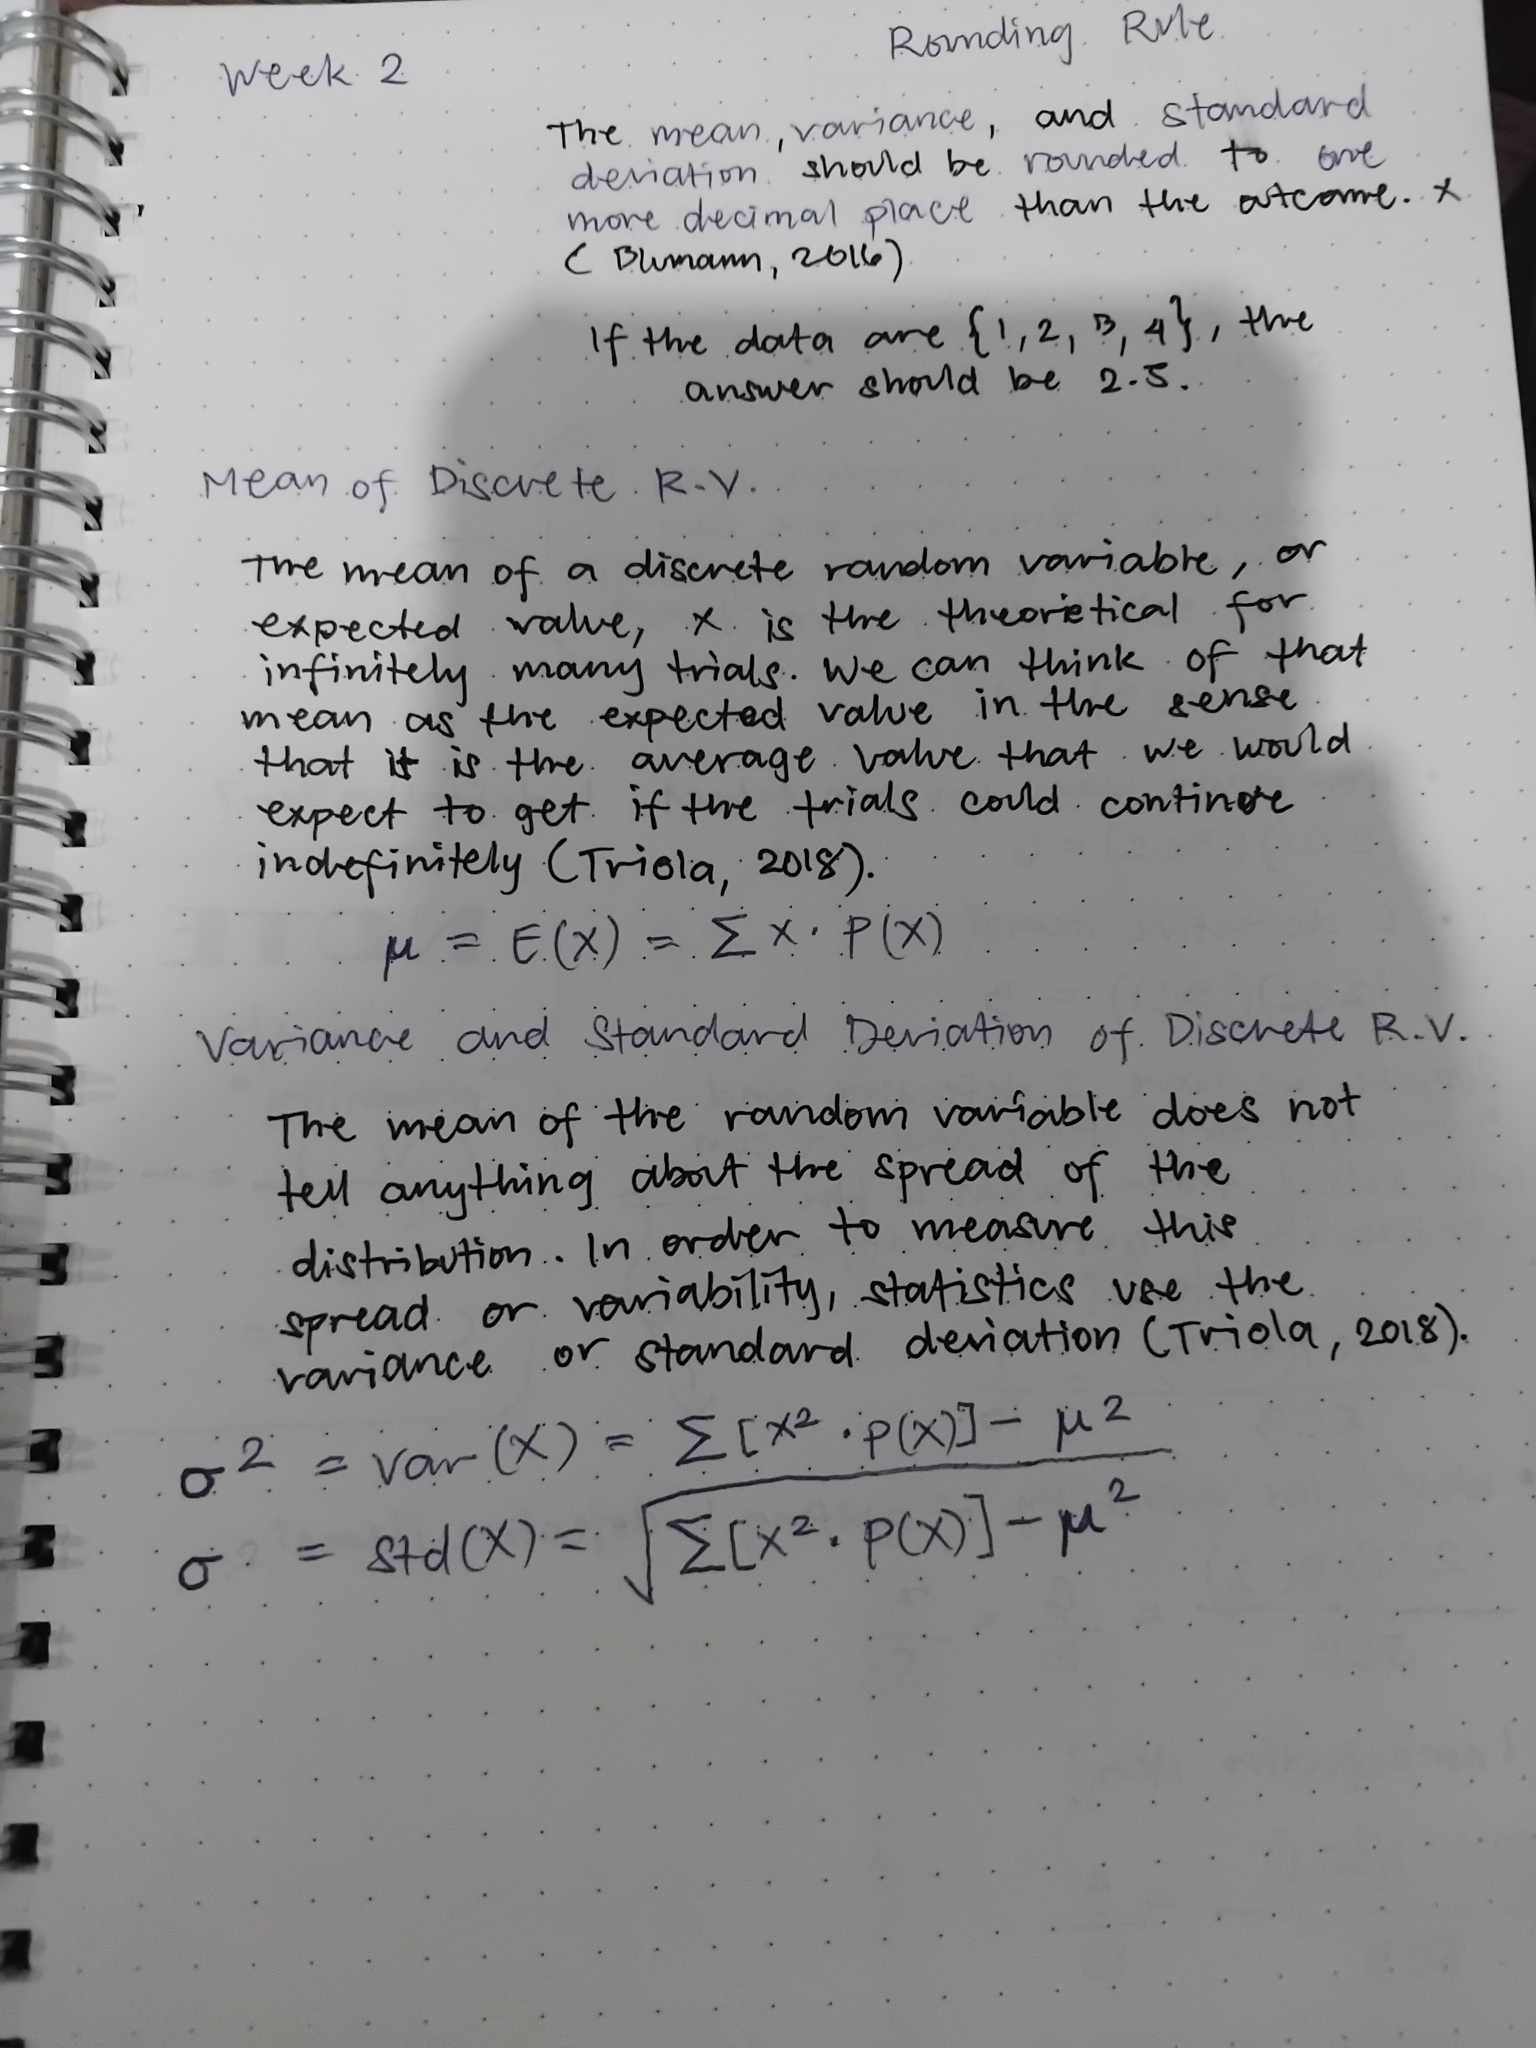 Week 2
Rounding Rule
The mean, variance, and standard
deviation should be rounded to one
more decimal place than the outcome. X
(Blumann, 2016)
If the data are {1, 2, 3, 4}, the
answer should be 2.5.
Mean of Discrete R.V.
The mean of a discrete random variable, or
expected value, X is the theoretical for
infinitely many trials. We can think of that
mean as the expected value in the sense
that it is the average value that we would
expect to get if the trials could continue
indefinitely (Triola, 2018).
μ = E(X) = Σ X · P(X)
Variance and Standard Deviation of Discrete R.V.
The mean of the random variable does not
tell anything about the spread of the
distribution. In order to measure this
spread or variability, statistics use the
variance or standard deviation (Triola, 2018).
σ² = Var(X) = Σ[X² · P(X)] - μ²
σ = Std(X) = √Σ[X² · P(X)] - μ²